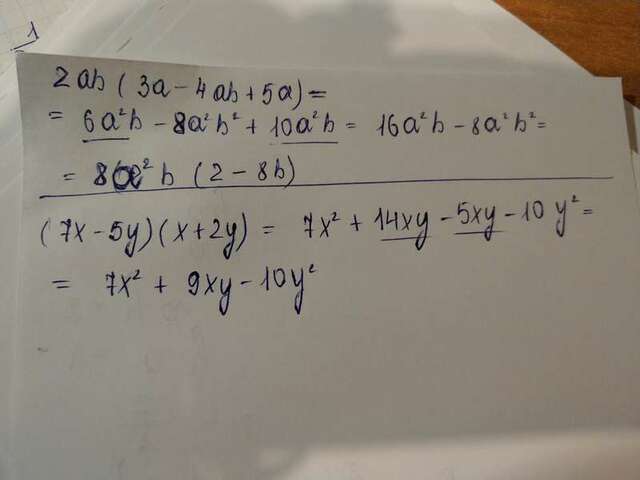 2ab (3a - 4ab + 5a) =
= 6a²b - 8a²b² + 10a²b = 16a²b - 8a²b² =
= 8a²b (2 - 8b)
(7x - 5y)(x + 2y) = 7x² + 14xy - 5xy - 10y² =
= 7x² + 9xy - 10y²